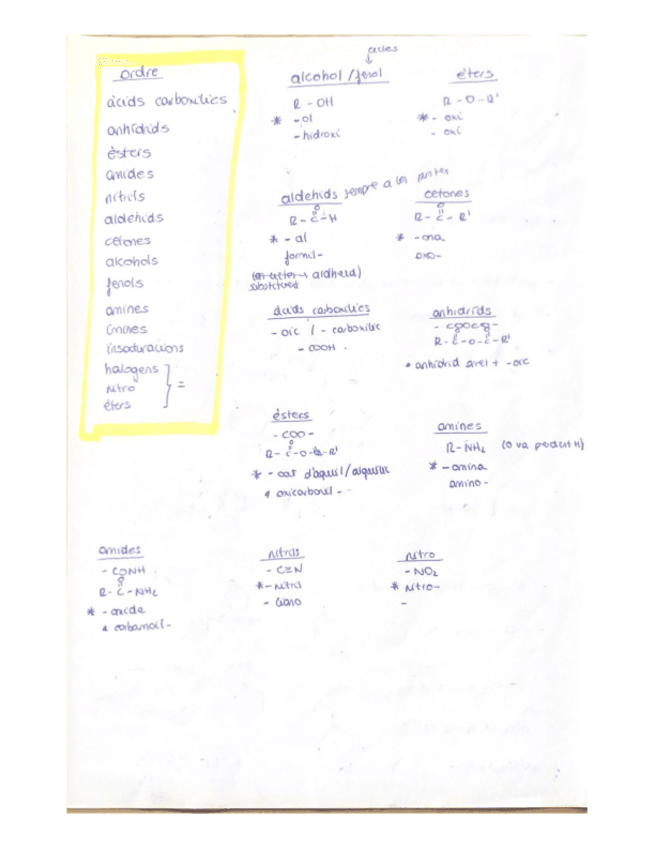 ordre
àcids carboxílics
anhídrids
èsters
amides
nitrils
aldehids
cetones
alcohols
fenols
amines
imines
insaturacions
halogens
nitro
èters
=
alcohol / fenol
R - OH
* - ol
- hidroxi
èters
R - O - R'
* - oxi
- oxi
aldehids sempre a les puntes
O
R - C - H
* - al
formil -
substituent
cetones
O
R - C - R'
* - ona
oxo -
àcids carboxílics
- oic / - carboxílic
- COOH
anhídrids
R - C - O - C - R'
• anhídrid arrel + - oic
èsters
- COO -
O
* - oat d'alquil / alquílic
oxicarbonil -
amines
R - NH2
* - amina
amino -
amides
- CONH
O
R - C - NH2
* - amida
carbamoil -
nitrils
- C≡N
* - nitril
- ciano
nitro
- NO2
* nitro -
-